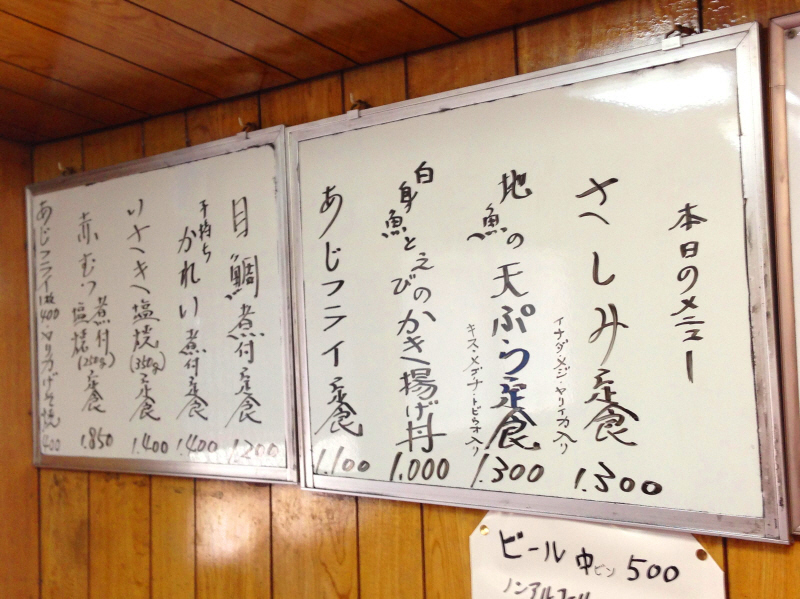 本日のメニュー
さしみ定食 1.300
イナダ・メジ・ヤリイカ入り
地魚の天ぷら定食 1.300
キス・メゴチ・トビウオ入り
白身魚とえびのかき揚げ丼 1.000
あじフライ定食 1.100
目鯛煮付定食 1.200
子持ちかれい煮付定食 1.400
いさき塩焼(350g)定食 1.400
赤むつ煮付塩焼(250g)定食 1.850
あじフライ1枚400・ヤリイカげそ焼 400
ビール 中ビン 500
ノンアルコール